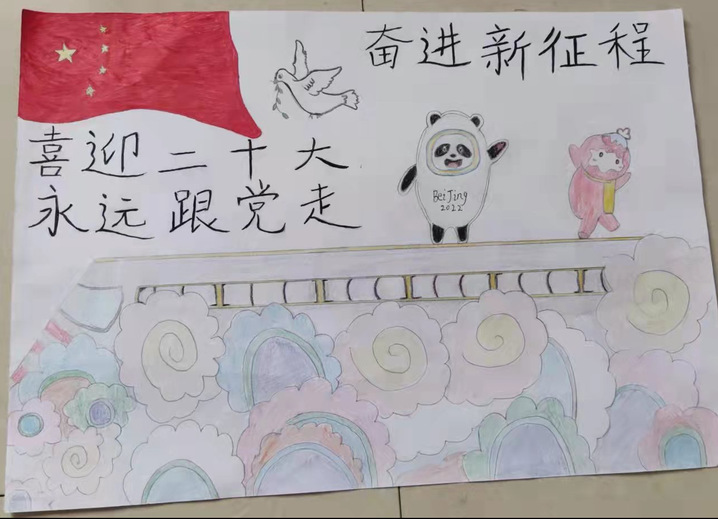 奋进新征程
喜迎二十大
永远跟党走
BeiJing
2022